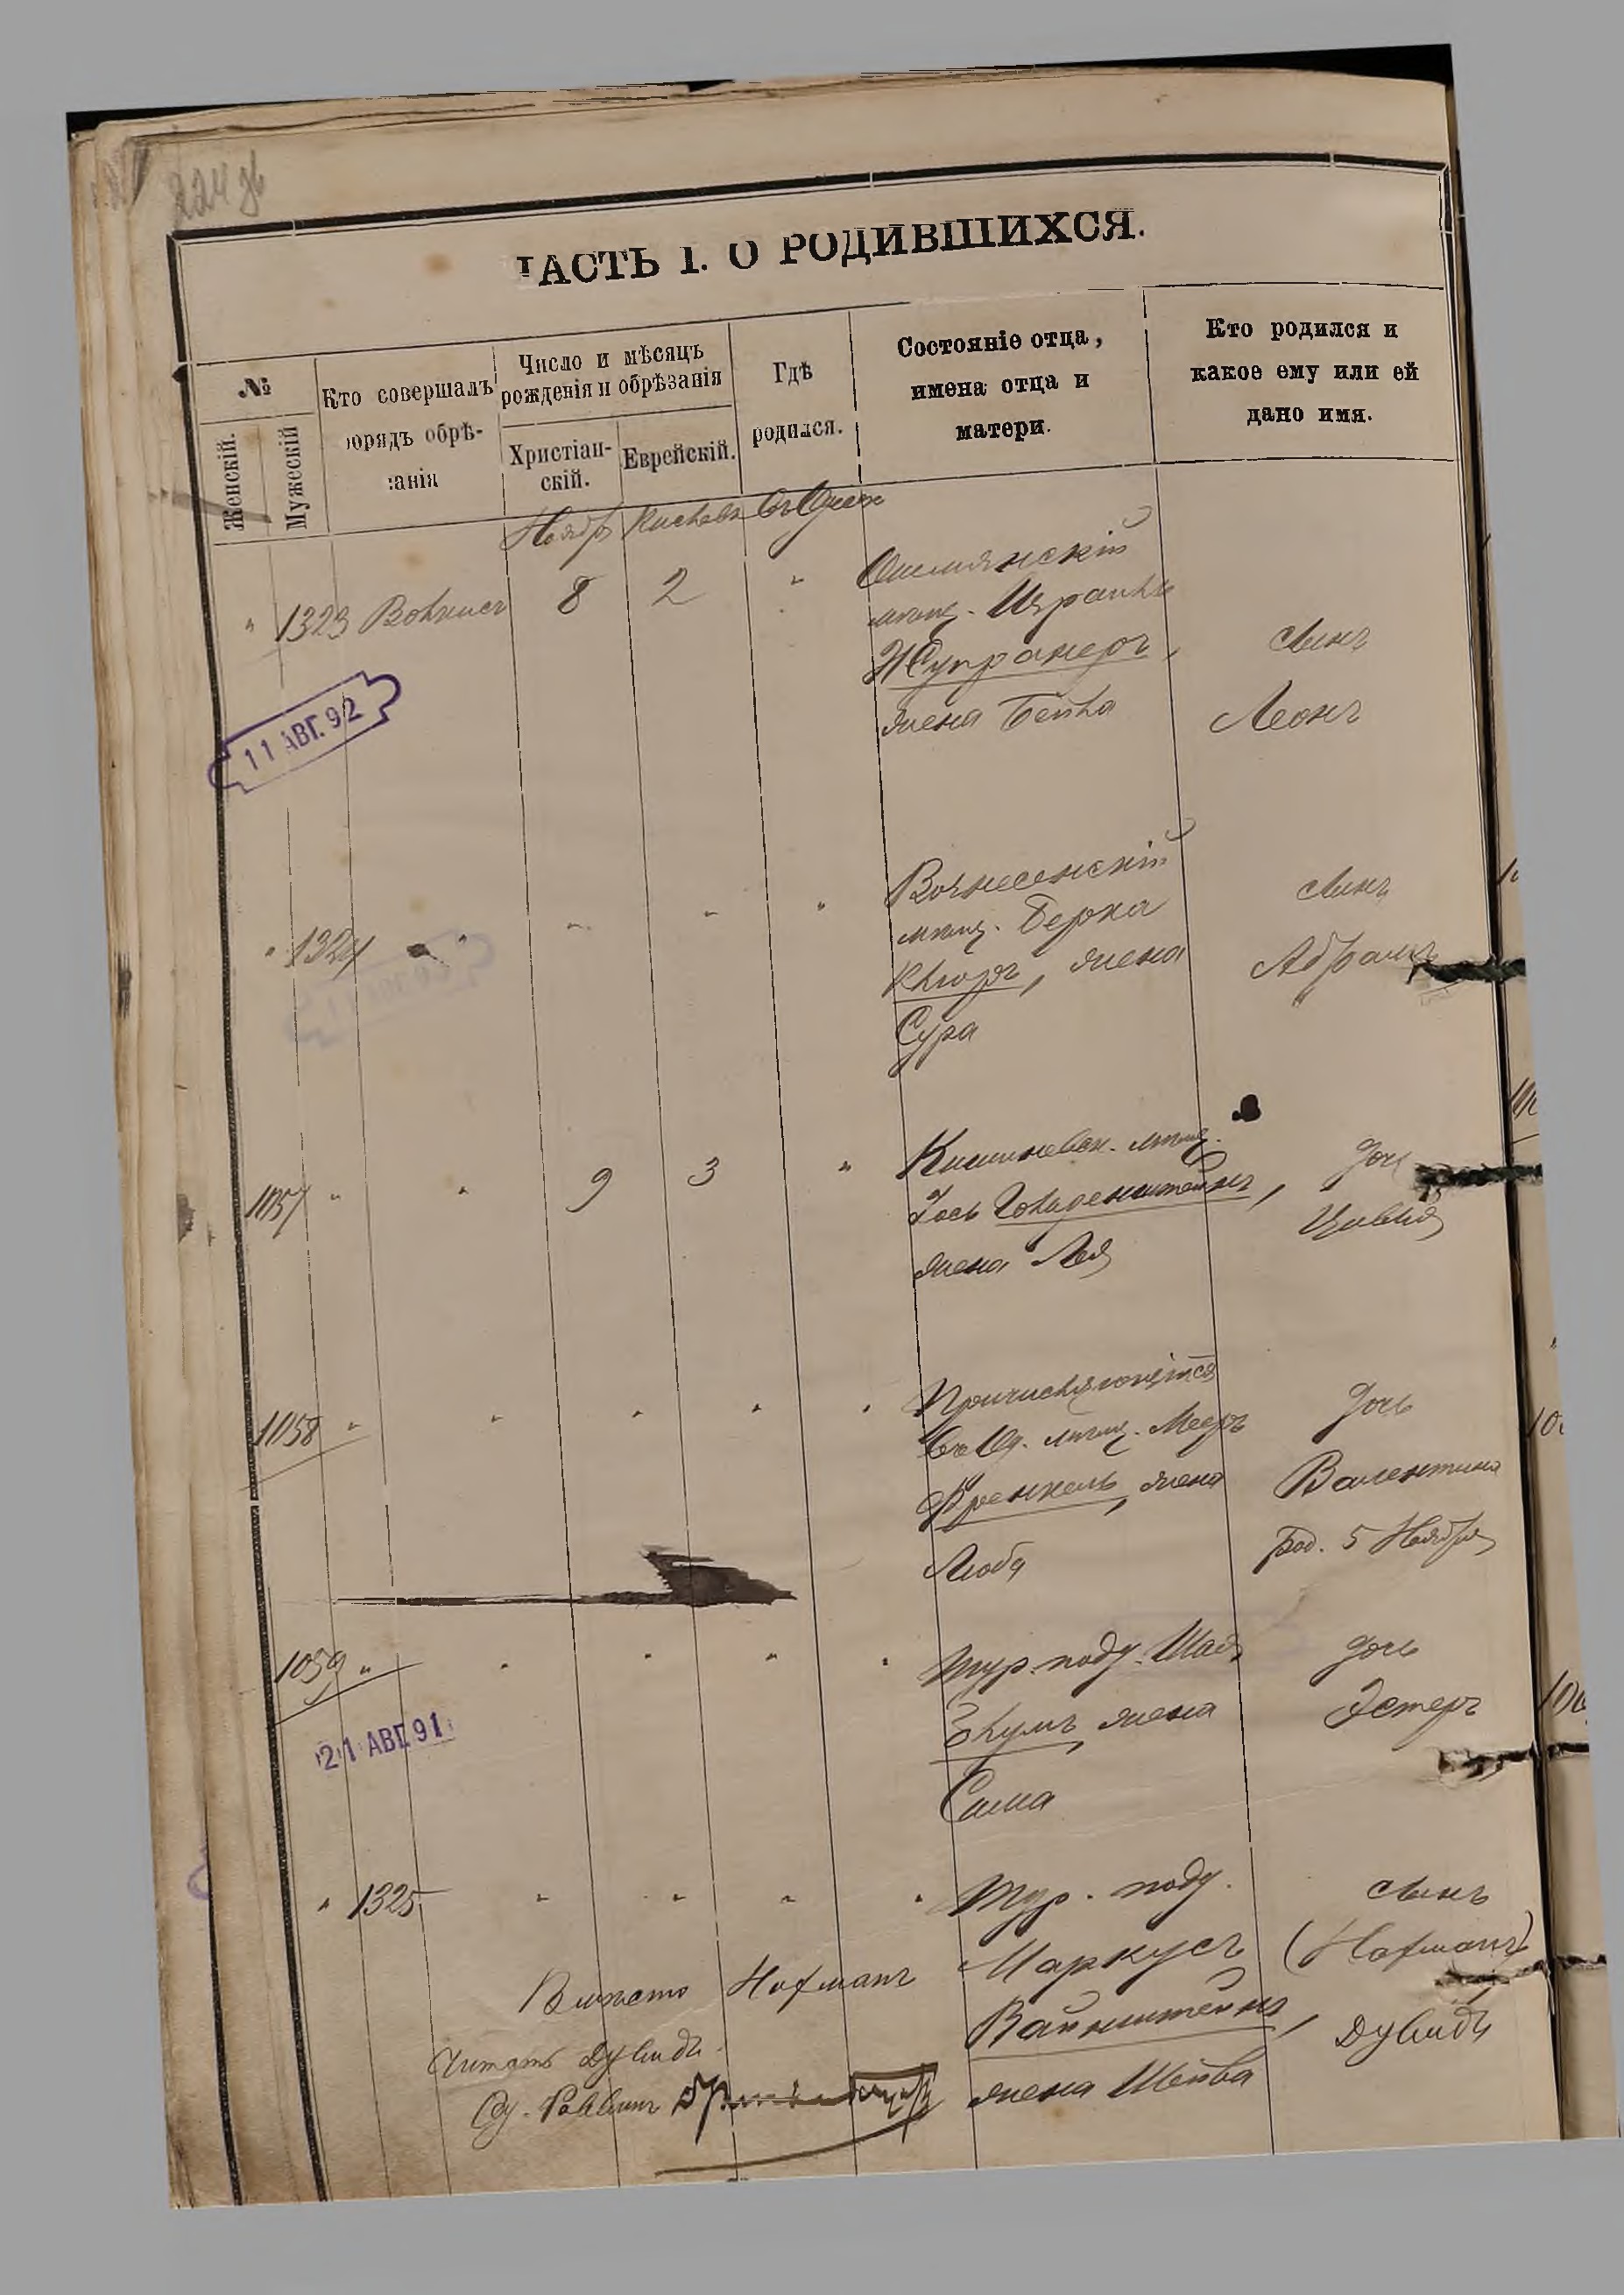 224 об
ЧАСТЬ I. О РОДИВШИХСЯ.
№
Женскій.
Мужескій
Кто совершалъ
обрядъ обрѣ-
занія
Число и мѣсяцъ
рожденія и обрѣзанія
Христіан-
скій.
Еврейскій.
Гдѣ
родился.
Состояніе отца,
имена отца и
матери.
Кто родился и
какое ему или ей
дано имя.
Ноябр Кислевъ
" 1323 8 2 " Ошмянскій
мѣщ. Израиль
Жупранеръ,
жена Бейла
сынъ
Леонъ
11 АВГ. 92
" 1324 " " " " Вознесенскій
мѣщ. Берка
Клюзъ, жена
Сура
сынъ
Абрамъ
1057 " " 9 3 " Кишиневск. мѣщ.
Іось Гольденштейнъ,
жена Лея
дочь
Цивья
1058 " " " " " Причисляющійся
въ Од. мѣщ. Мееръ
Френкель, жена
Люба
дочь
Валентина
Род. 5 Ноября
1059 " " " " " Тур. подд. Шая
жена
Сима
дочь
Эстеръ
21 АВГ. 91
" 1325 " " " " Тур. подд.
Маркусъ
Вайнштейнъ,
жена Шейва
сынъ
(Нафманъ)
Дувидъ
Вмѣсто Нафманъ
читать Дувидъ.
Од. Раввинъ